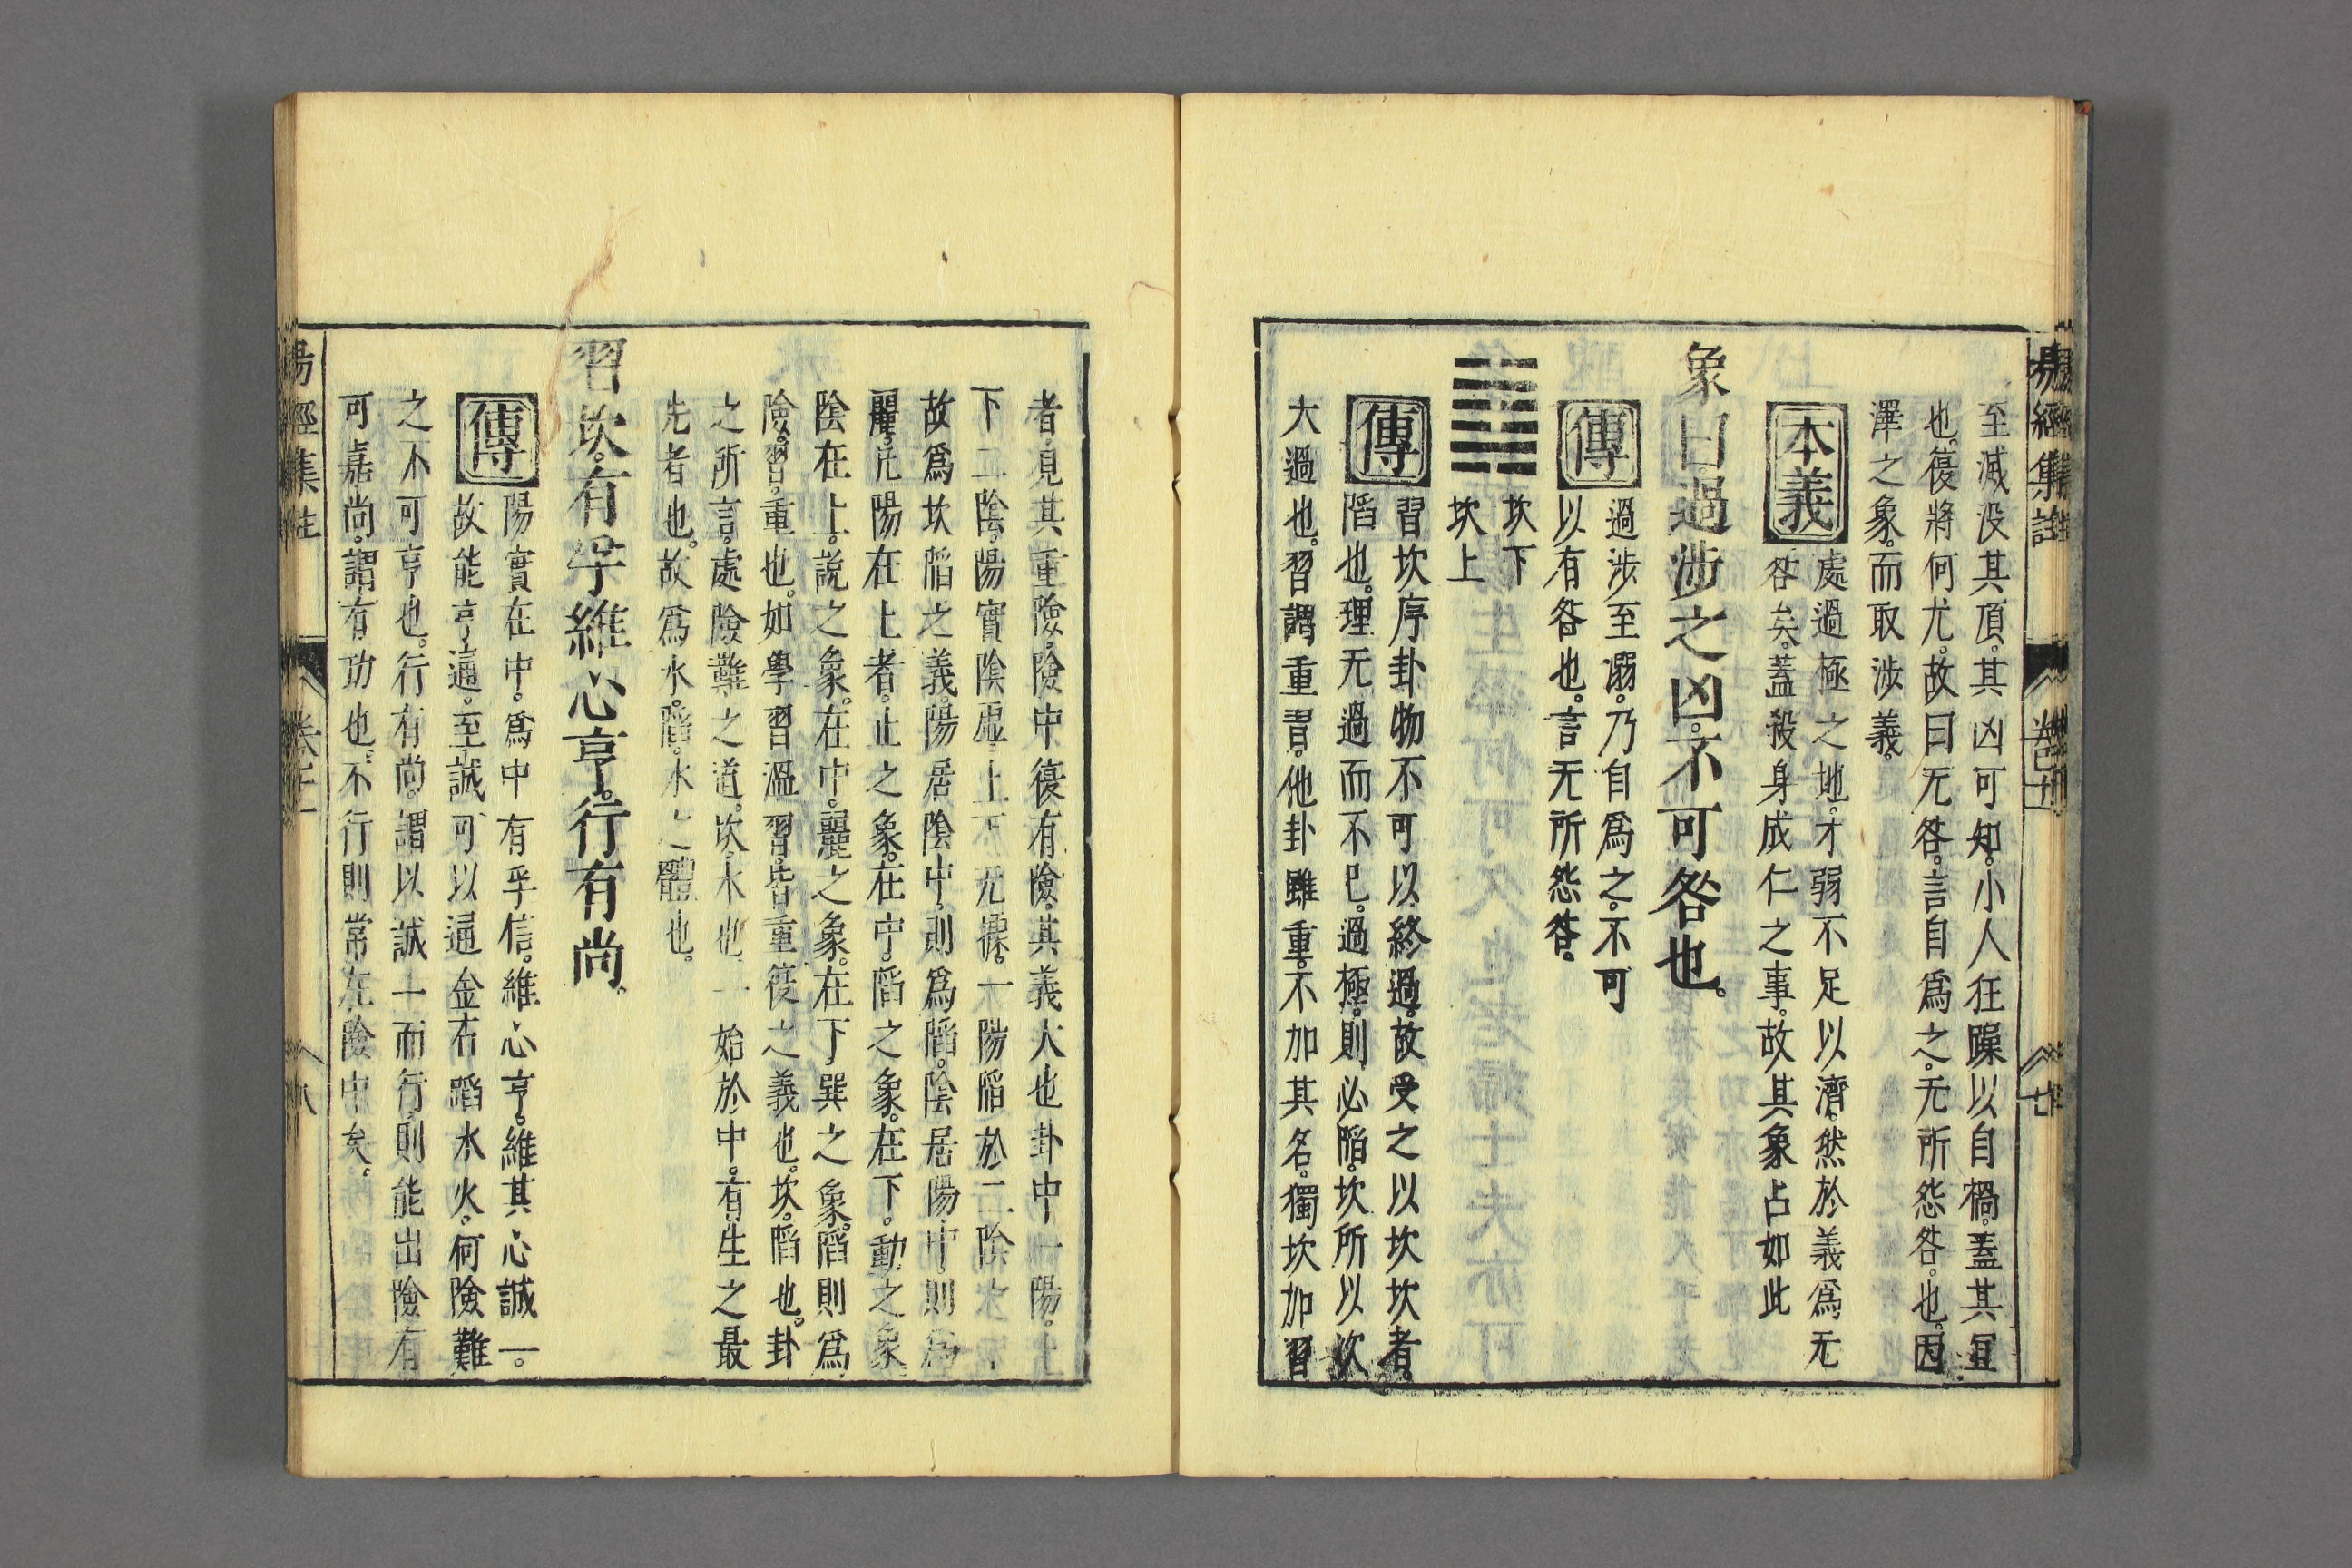 至滅没其頂。其凶可知。小人狂躁以自禍。蓋其宜
也。復將何尤。故曰无咎。言自爲之。无所怨咎也。因
澤之象。而取涉義。
本義
處過極之地。才弱不足以濟。然於義爲无
咎矣。蓋殺身成仁之事。故其象占如此
象曰。過涉之凶。不可咎也。
傳
過涉至溺。乃自爲之。不可
以有咎也。言无所怨咎。
坎下
坎上
傳
習坎序卦物不可以終過。故受之以坎坎者。
陷也。理无過而不已。過極。則必陷。坎所以次
大過也。習謂重習。他卦雖重。不加其名。獨坎加習
者。見其重險。險中復有險。其義大也卦中一陽。上
下二陰。陽實陰虛。上下无據。一陽陷於二陰
故爲坎陷之義。陽居陰中。則爲陷。陰居陽中。則爲
麗。凡陽在上者。止之象。在中。陷之象。在下。動之象
陰在上。說之象。在中。麗之象。在下巽之象。陷則爲
險。習。重也。如學習溫習。皆重復之義也。坎。陷也。卦
之所言。處險難之道。坎。水也。一始於中。有生之最
先者也。故爲水。陷。水之體也。
習坎。有孚維心亨。行有尚。
傳
陽實在中。爲中有孚信。維心亨。維其心誠一。
故能亨通。至誠可以通金石蹈水火。何險難
之不可亨也。行有尚。謂以誠一而行。則能出險有
可嘉尚。謂有功也。不行則常在險中矣。
易經集註